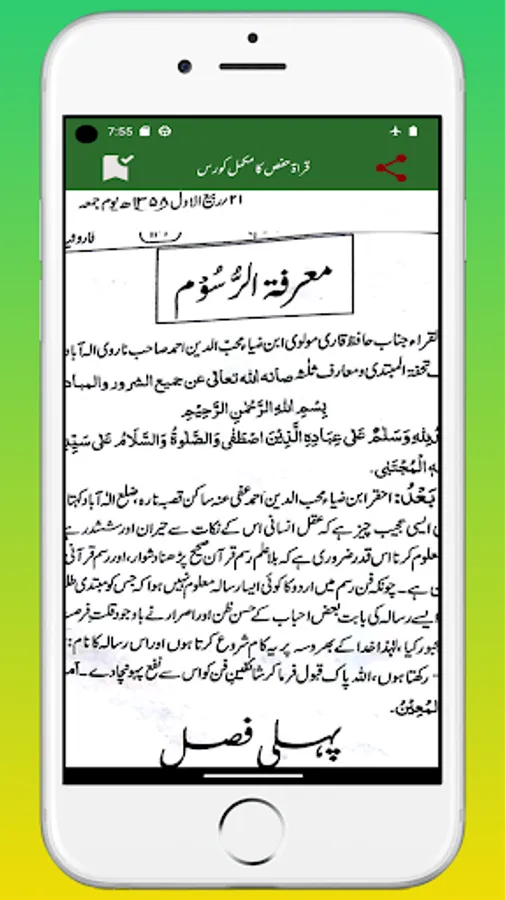 7:55
قراۃ حفص کا مکمل کورس
۲۱/ربیع الاول ۱۳۵۸ھ یوم جمعہ
معرفۃ الرُّسُوْم
القراء جناب حافظ قاری مولوی ابن ضیاء محبّ الدین احمد صاحب ناروی الٰہ آباد
تحفۃ المبتدی و معارف ثلثہ صانہ اللہ تعالیٰ عن جمیع الشرور والمباد
بِسْمِ اللهِ الرَّحْمٰنِ الرَّحِيْمِ
لِلّٰهِ وَسَلٰمٌ عَلٰی عِبَادِهِ الَّذِيْنَ اصْطَفٰی وَالصَّلٰوةُ وَالسَّلَامُ عَلٰی سَيِّدِ
الْمُجْتَبٰی۔
بَعْدُ: احقر ابن ضیاء محب الدین احمد عفی عنہ ساکن قصبہ نارہ، ضلع الٰہ آباد کہتا
ایسی عجیب چیز ہے کہ عقل انسانی اس کے نکات سے حیران اور ششدر ہے
معلوم کرنا اس قدر ضروری ہے کہ بلا علم رسم قرآن صحیح پڑھنا دشوار، اور رسم قرآنی
ہے۔ چونکہ فن رسم میں اردو کا کوئی ایسا رسالہ معلوم نہیں ہوا کہ جس کو مبتدی طل
ایسے رسالہ کی بابت بعض احباب کے حسن ظن اور اصرار نے باوجود قلت فرصت
مجبور کیا، لہٰذا خدا کے بھروسہ پر یہ کام شروع کرتا ہوں اور اس رسالہ کا نام:
رکھتا ہوں، اللہ پاک قبول فرما کر شائقین فن کو اس سے نفع پہونچا دے۔ آمـ
الْمُعِيْنُ۔
پہلی فصل